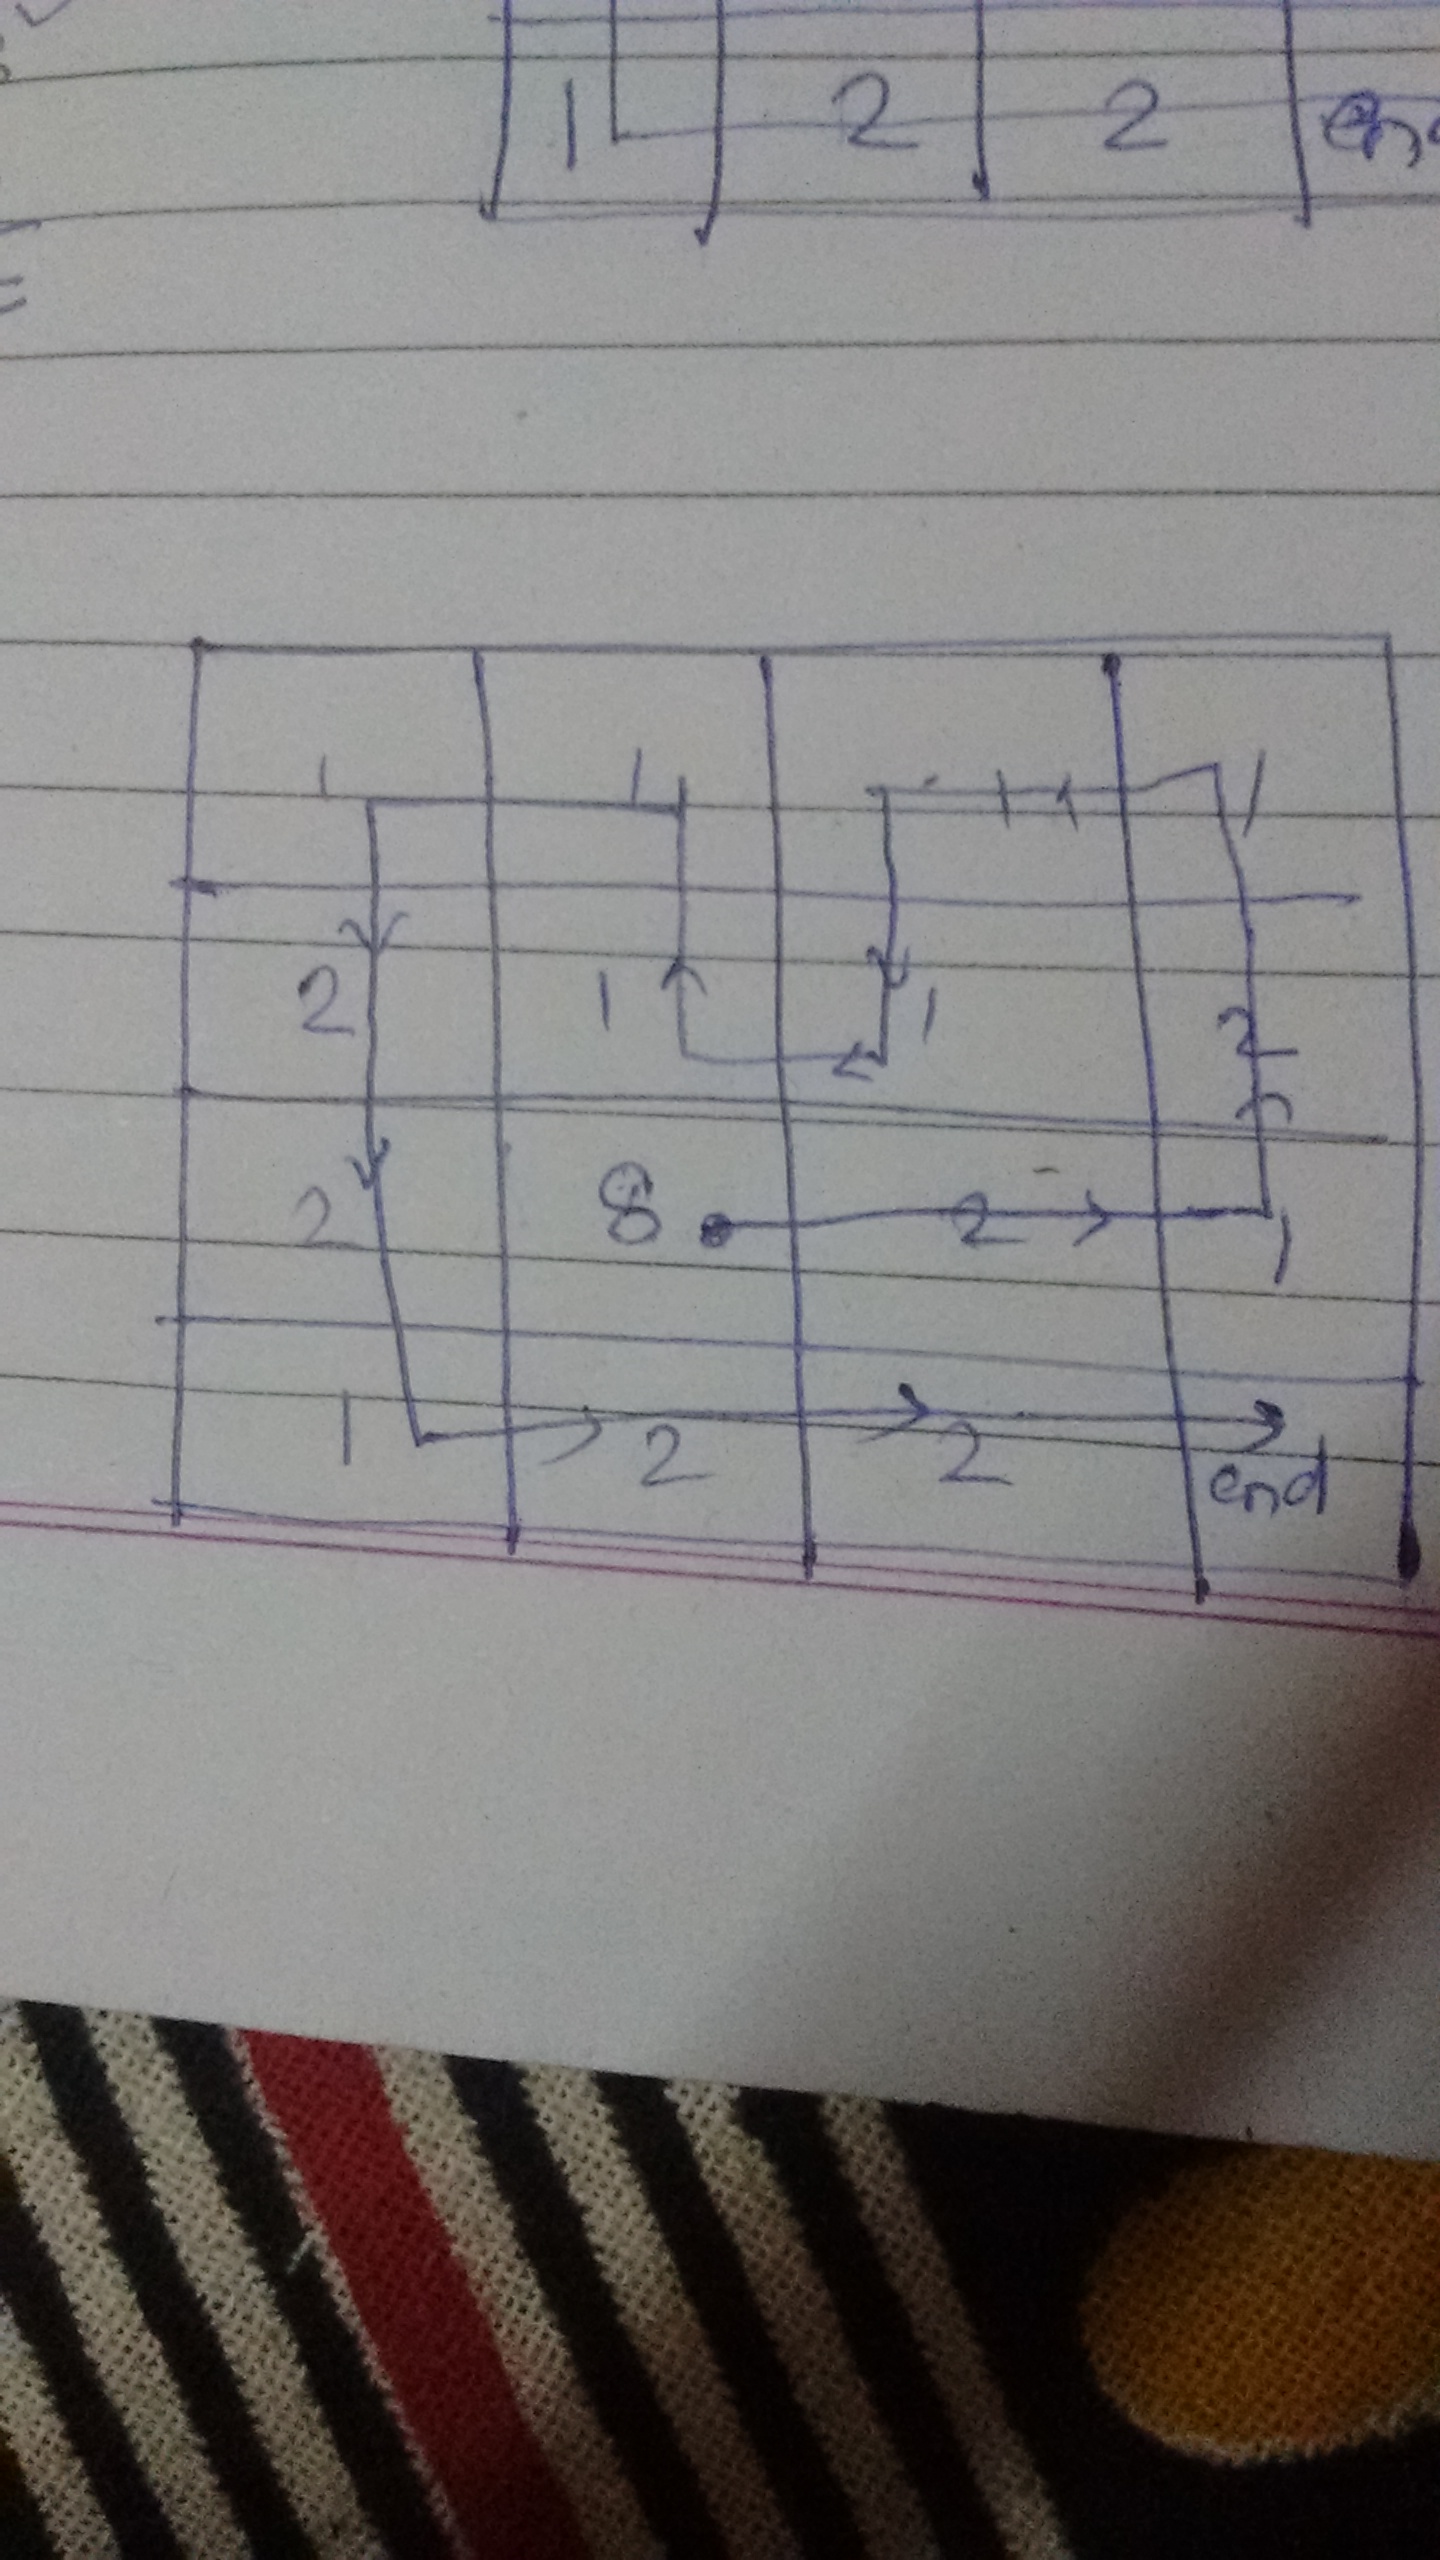 1 2 2
1 1 1 1
2 1 1 2
2 8 2 1
1 2 2 end